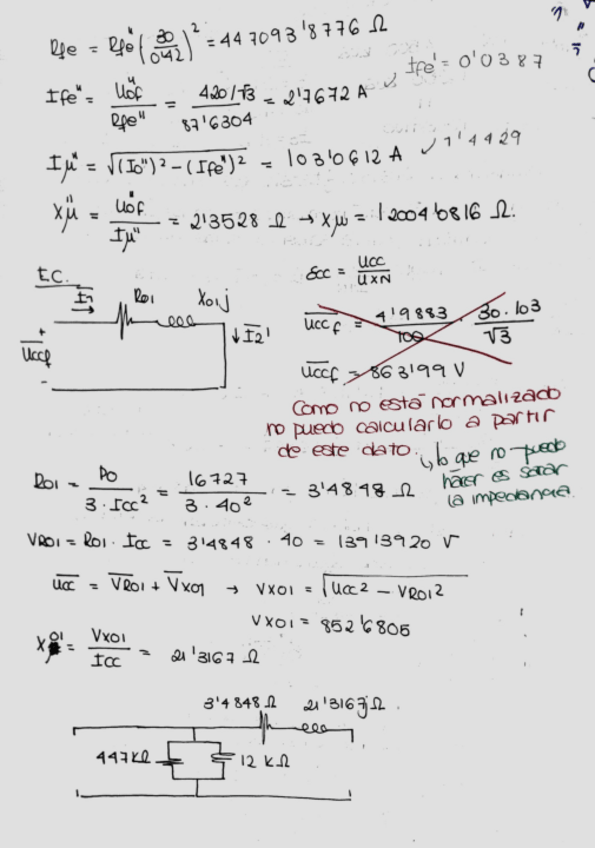 Rfe = Rfe" (30/0'42)² = 447093'8776 Ω
Ife" = Uof"/Rfe" = 420/√3 / 87'6304 = 2'7672 A ✓ Ife' = 0'0387
Iμ" = √(Io")² - (Ife")² = 103'0612 A ✓ 1'4429
Xμ" = Uof"/Iμ" = 2'3528 Ω → Xμ = 12004'0816 Ω.
E.C.
I1 R01 X01j
Uccf + - ↓ I2'
εcc = Ucc/UxN
Uccf = 4'9883/100 · 30·103/√3
Uccf = 863'99 V
Como no está normalizado
no puedo calcularlo a partir
de este dato. ↳ lo que no puedo
hacer es sacar
la impedancia.
R01 = P0/3·Icc² = 16727/3·40² = 3'4848 Ω
VR01 = R01 · Icc = 3'4848 · 40 = 139'3920 V
Ucc = VR01 + VX01 → VX01 = √Ucc² - VR01²
VX01 = 852'6805
X01 = VX01/Icc = 21'3167 Ω
3'4848 Ω 21'3167j Ω.
447 KΩ 12 KΩ